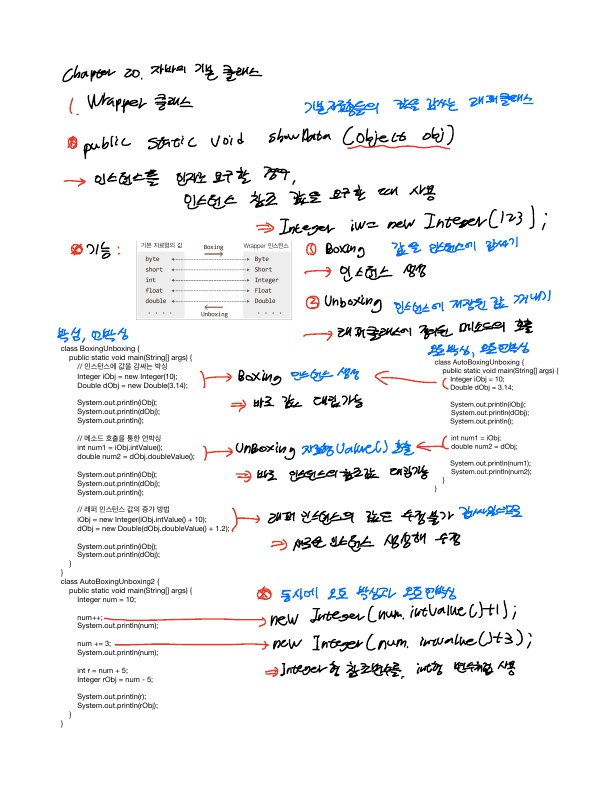 Chapter 20. 자바의 기본 클래스
1. Wrapper 클래스 기본자료형들의 값을 감싸는 래퍼클래스
※ public static void showData (Object obj)
→ 인스턴스를 인자로 요구할 경우,
인스턴스 참조 값을 요구할 때 사용
⇒ Integer iw = new Integer(123);
※ 기능 :
기본 자료형의 값 Boxing Wrapper 인스턴스
byte Byte
short Short
int Integer
float Float
double Double
· · · · Unboxing · · · ·
① Boxing 값을 인스턴스에 감싸기
→ 인스턴스 생성
② Unboxing 인스턴스에 저장된 값 꺼내기
→ 래퍼클래스에 정의된 메소드의 호출
박싱, 언박싱
class BoxingUnboxing {
public static void main(String[] args) {
// 인스턴스에 값을 감싸는 박싱
Integer iObj = new Integer(10);
Double dObj = new Double(3.14);
System.out.println(iObj);
System.out.println(dObj);
System.out.println();
// 메소드 호출을 통한 언박싱
int num1 = iObj.intValue();
double num2 = dObj.doubleValue();
System.out.println(iObj);
System.out.println(dObj);
System.out.println();
// 래퍼 인스턴스 값의 증가 방법
iObj = new Integer(iObj.intValue() + 10);
dObj = new Double(dObj.doubleValue() + 1.2);
System.out.println(iObj);
System.out.println(dObj);
}
}
→ Boxing 인스턴스 생성
⇒ 바로 값 대입가능
→ UnBoxing 자료형Value() 호출
⇒ 바로 인스턴스의 참조값 대입가능
→ 래퍼 인스턴스의 값은 수정불가 감싸있으므로
⇒ 새로운 인스턴스 생성해 수정
오토박싱, 오토언박싱
class AutoBoxingUnboxing {
public static void main(String[] args) {
Integer iObj = 10;
Double dObj = 3.14;
System.out.println(iObj);
System.out.println(dObj);
System.out.println();
int num1 = iObj;
double num2 = dObj;
System.out.println(num1);
System.out.println(num2);
}
}
class AutoBoxingUnboxing2 {
public static void main(String[] args) {
Integer num = 10;
num++;
System.out.println(num);
num += 3;
System.out.println(num);
int r = num + 5;
Integer rObj = num - 5;
System.out.println(r);
System.out.println(rObj);
}
}
※ 동시에 오토 박싱과 오토언박싱
→ new Integer(num.intValue()+1);
→ new Integer(num.intValue()+3);
⇒ Integer형 참조변수를, int형 변수처럼 사용